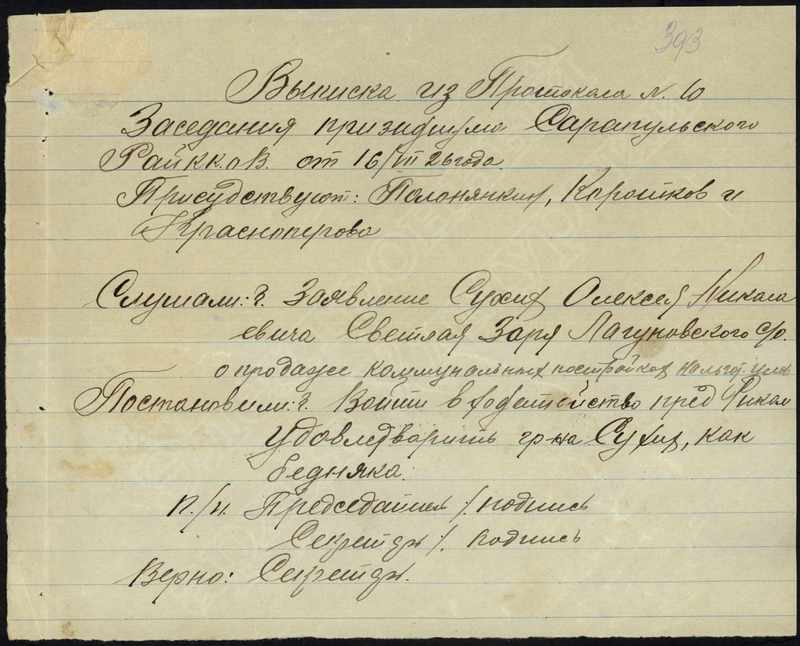 393
Выписка из Протокала N. 10
Заседания призидиума Сарапульского
Райкков. от 16/VIII 26 года.
Присудствуют: Полонянкин, Коротков и
Красноперова
Слушали: 2. Заявление Сухих Олексея Никола
евича Светлая Заря Лагуновского с/о.
о продаже коммунальных постройков на льгот. цене
Постановили: 2. Войти в ходотойство пред Фикам
Удовледварить гр-на Сухих, как
бедняка.
п/п. Председатель /. подпись
Секретдж /. подпись
Верно: Секретдж.